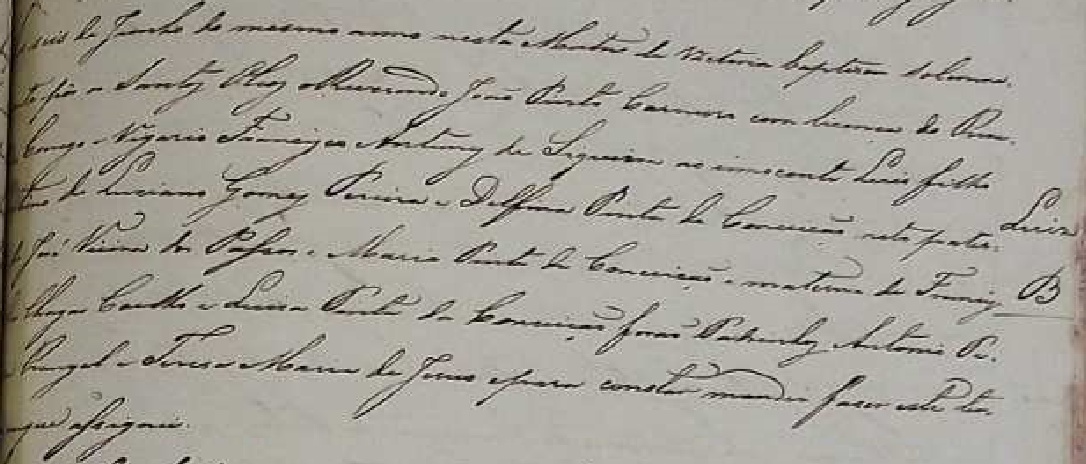 seis de Junho do mesmo anno nesta Matris da Victoria baptisou solemne
te pôs os Santos Oleos o Reverendo João Pinto Carneiro com licença do Reve
Vigario Francisco Antunes de Siqueira ao innocente Luis filho
de Luciano Gomes Pereira e Delfina Pinta da Conceição neto pater
José Vieira dos Passos e Maria Pinta da Conceição e materno de Francisco
Chagas Coutto e Luisa Pinta da Conceição forão Padrinhos Antonio
Rangel e Teresa Maria de Jesus e para constar mandei faser este
que assignei.
Luis
B